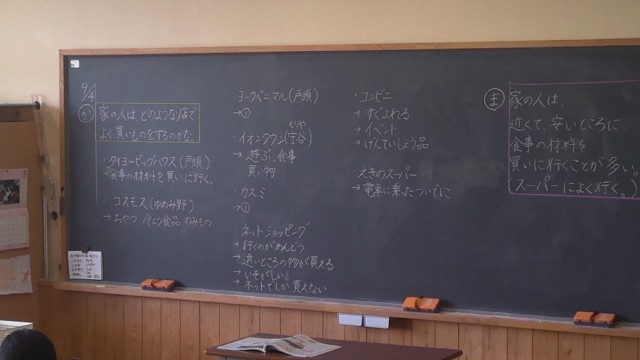 9/4
め
家の人は、どのような店で
よく買いものをするのかな。
・タイヨービッグハウス(戸頭)
→食事の材料を買いに行く。
・コスモス(ゆめみ野)
→おやつ 冷とう食品 のみもの
ヨークベニマル(戸頭)
→①
・イオンタウン(守谷)
もりや
→遊ぶ、食事
買い物
・カスミ
→①
・ネットショッピング
→行くのがめんどう
→遠いところの物が買える
→いそがしい
→ネットでしか買えない
・コンビニ
→すぐよれる
→イベント
→げんてい品
・えきのスーパー
→電車に乗ったついでに
ま
家の人は、
近くて、安いところに
食事の材料を
買いに行くことが多い。
(スーパーによく行く。)